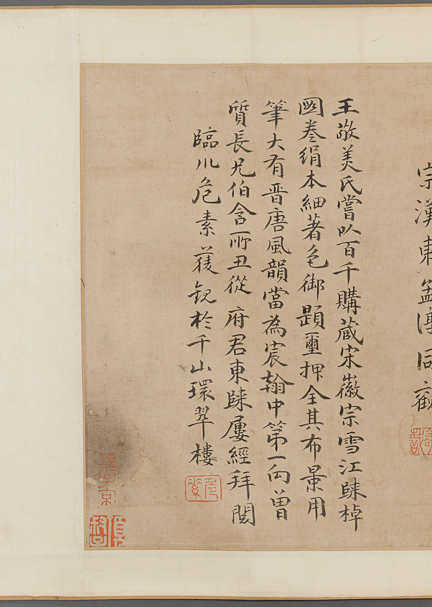 宗漢東孟淳同觀
王敬美氏嘗以百千購藏宋徽宗雪江歸棹
圖卷絹本細著色御題璽押全其布景用
筆大有晉唐風韻當為宸翰中第一向曾
質長兄伯含所丑從 府君東歸屢經拜閱
臨川危素獲觀於千山環翠樓